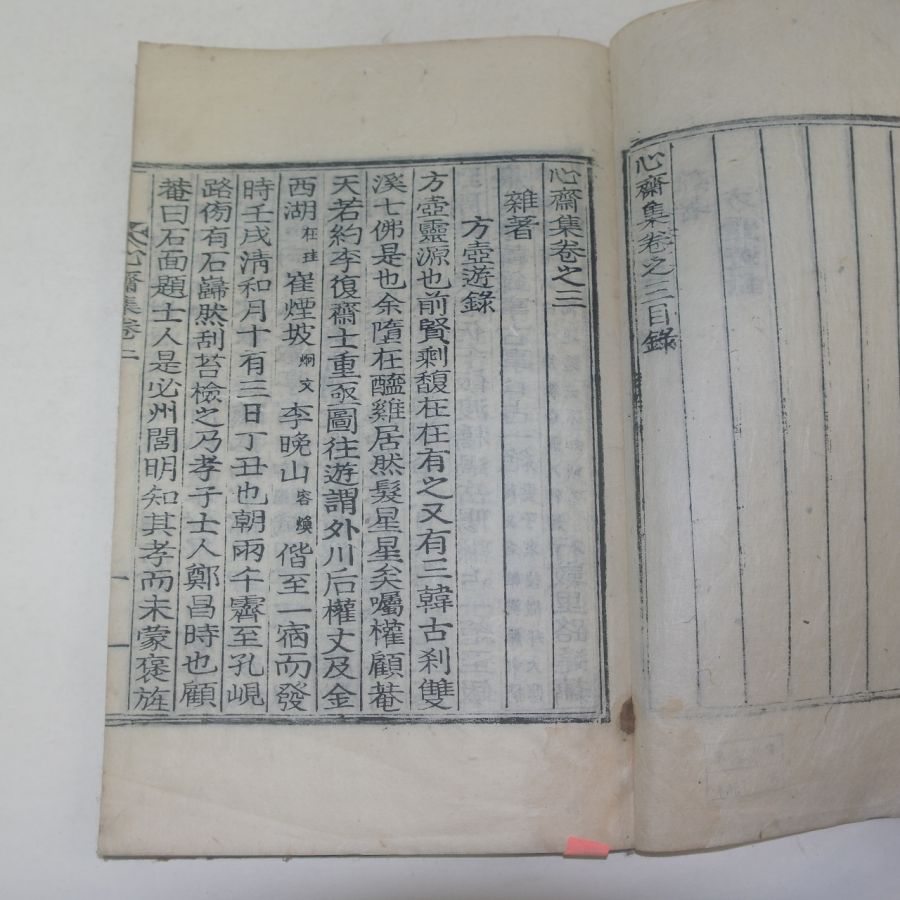 心齋集卷之三目錄
心齋集卷之三
雜著
方壺遊錄
方壺靈源也前賢剩馥在在有之又有三韓古刹雙
溪七佛是也余隨在醯雞居然髮星星矣囑權顧菴
天若約李復齋士重亟圖往遊謂外川后權丈及金
西湖在珪崔煙坡炯文李晩山容煥偕至一宿而發
時壬戌淸和月十有三日丁丑也朝雨午霽至孔峴
路傍有石巋然刮苔檢之乃孝子士人鄭昌時也顧
菴曰石面題士人是必州閭明知其孝而未蒙褒旌
心齋集卷三